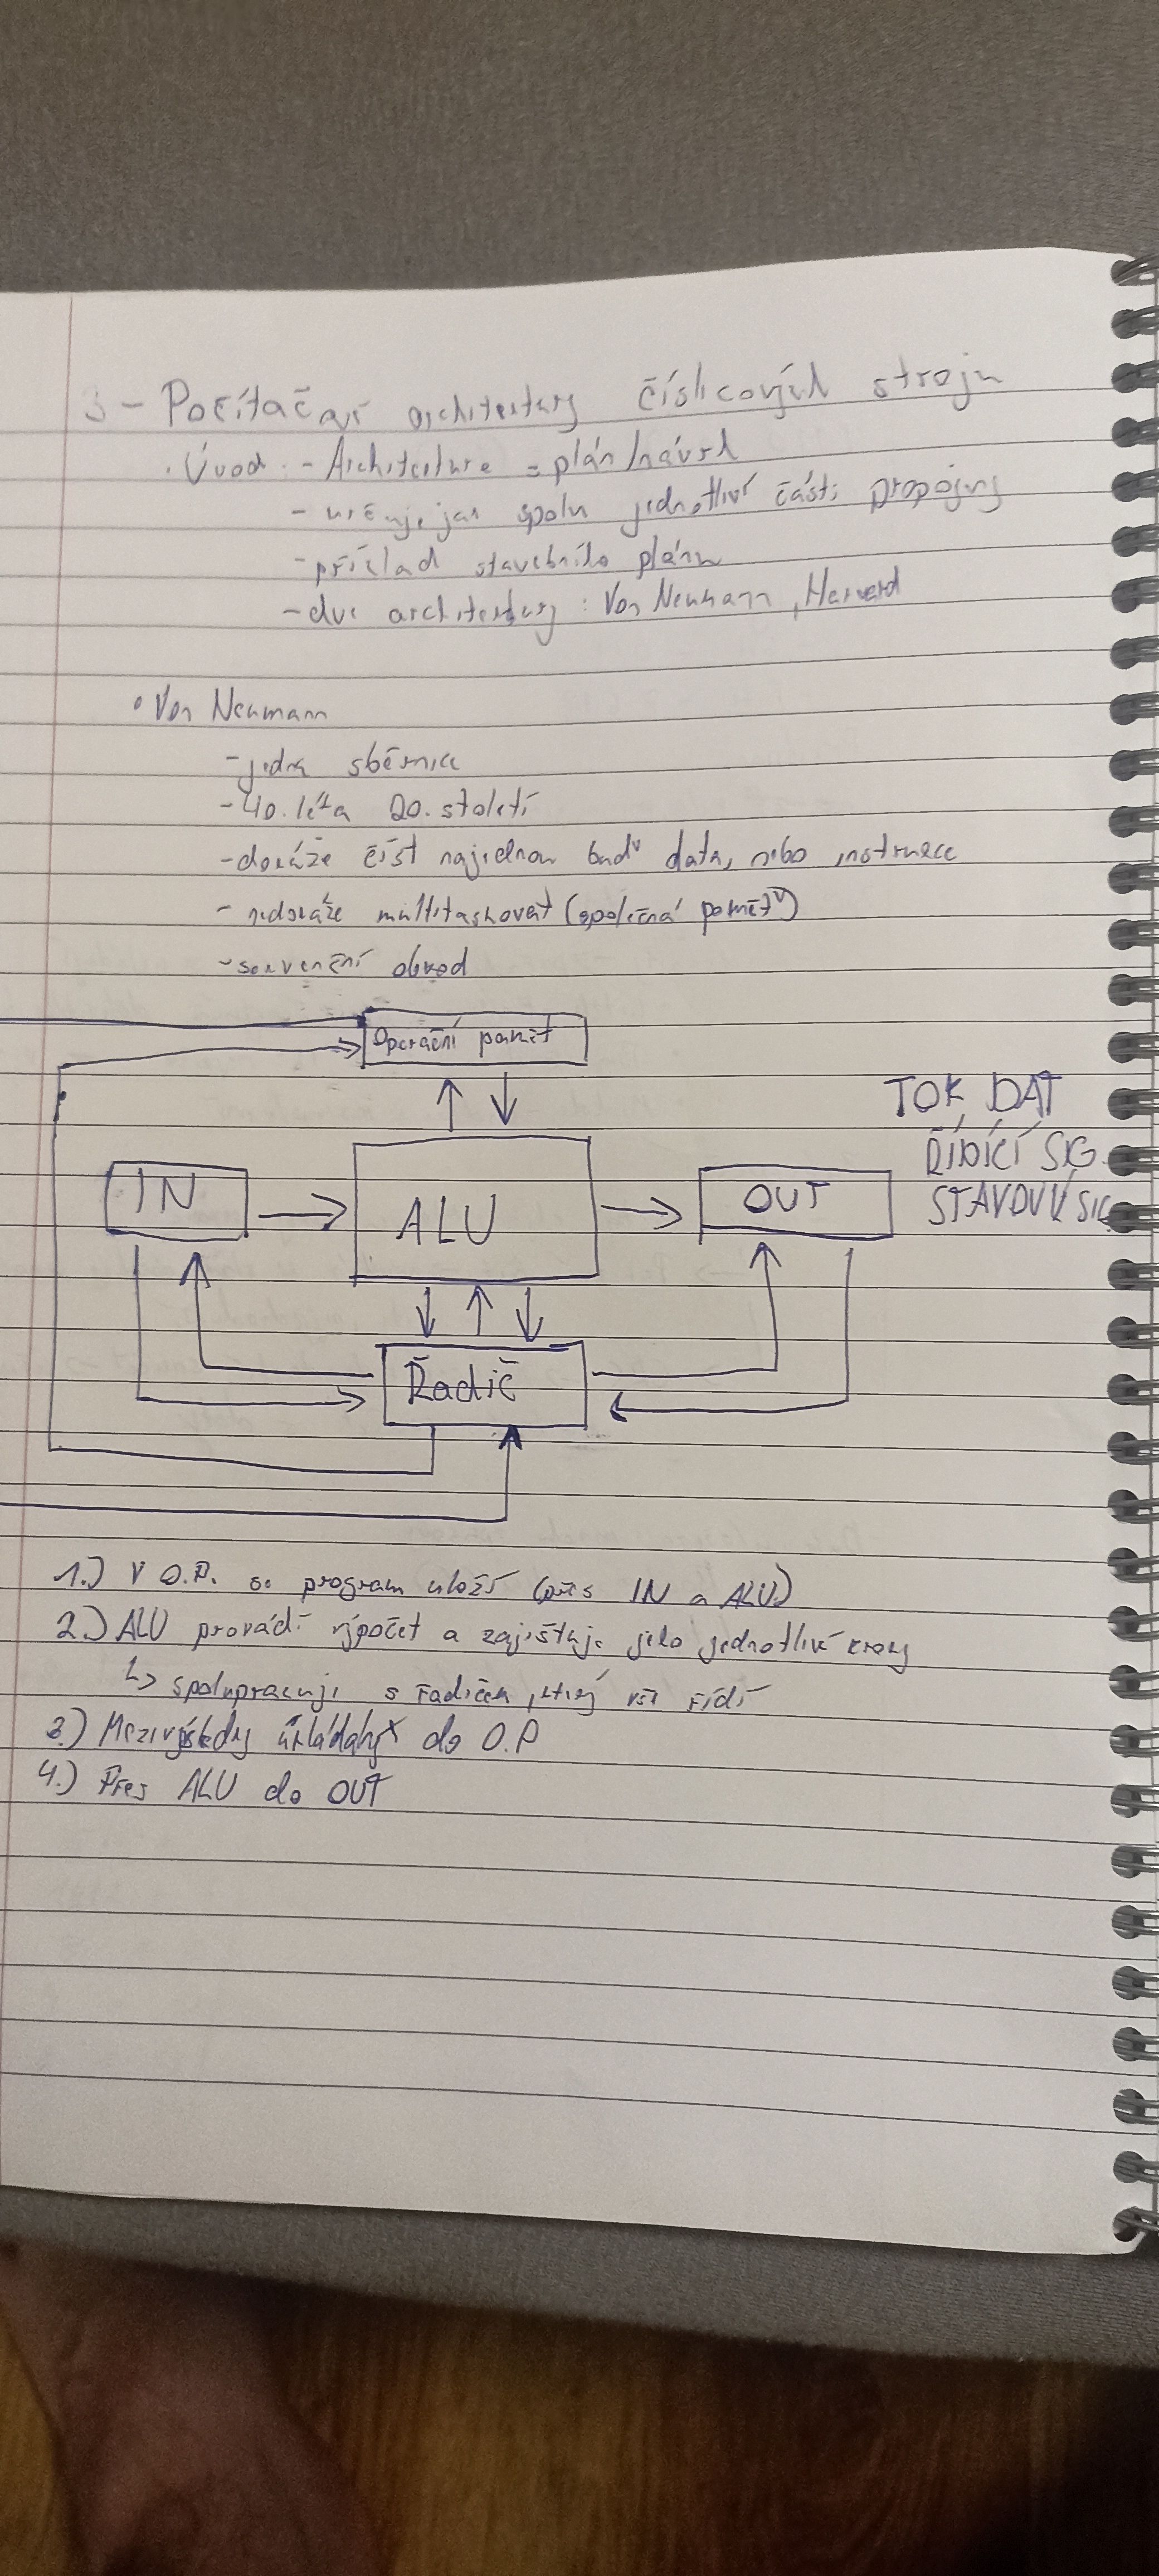 3 - Počítačové architektury číslicových strojů
· Úvod: - Architecture = plán/návrh
- určuje, jak spolu jednotlivé části propojeny
- příklad stavebního plánu
- dvě architektury: Von Neumann, Harvard
• Von Neumann
- jedna sběrnice
- 40. léta 20. století
- dokáže číst najednou buď data, nebo instrukce
- nedokáže multitaskovat (společná paměť)
- sekvenční obvod
Operační paměť
TOK DAT
ŘÍDÍCÍ SIG.
STAVOVÝ SIG
IN
ALU
OUT
Řadič
1.) V O.P. se program uloží (přes IN a ALU)
2.) ALU provádí výpočet a zajišťuje jeho jednotlivé kroky
↳ spolupracuje s řadičem, který vše řídí
3.) Mezivýsledky ukládány do O.P
4.) Přes ALU do OUT